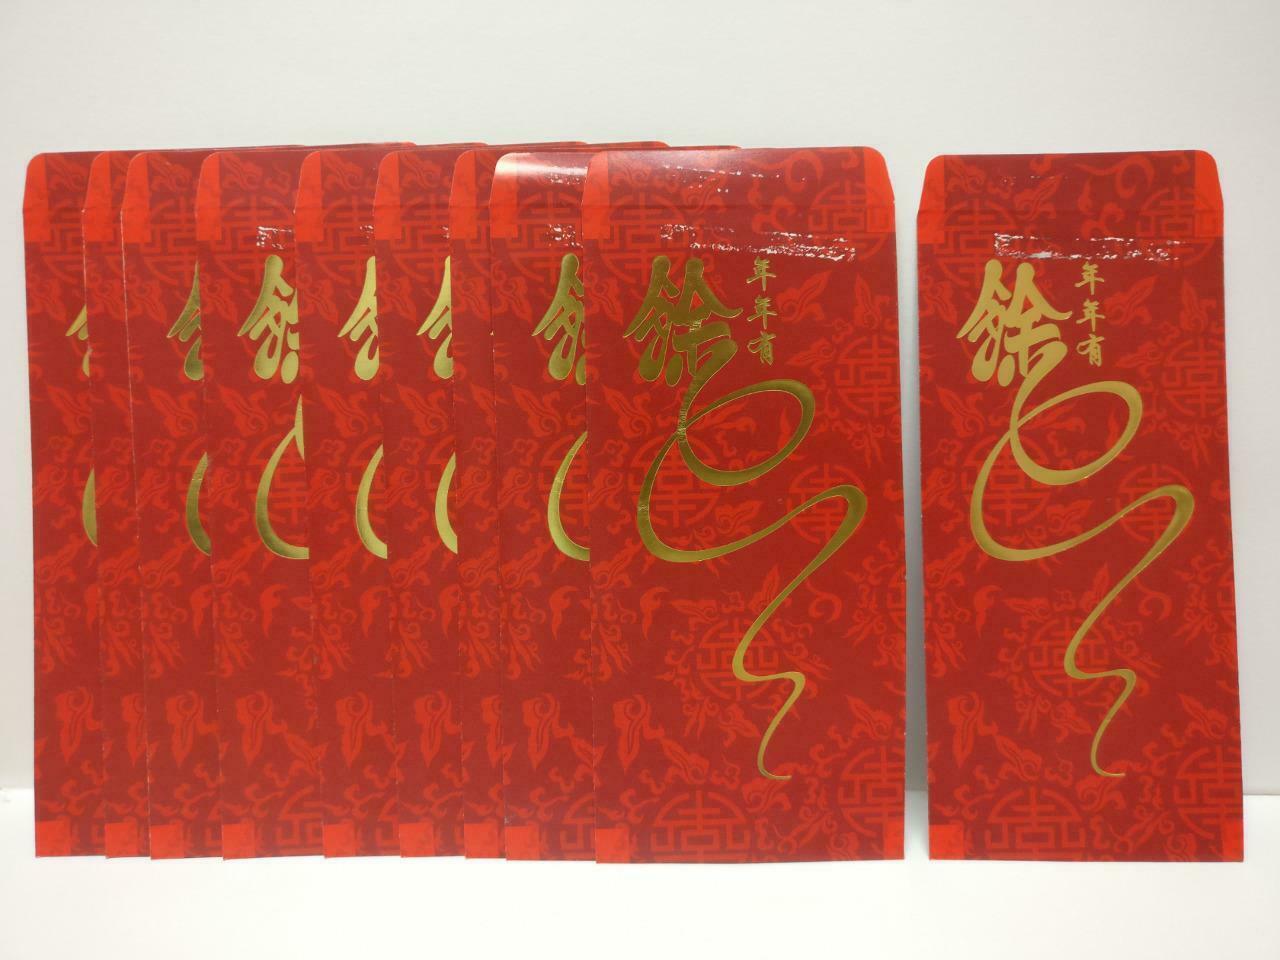 年年有
餘
年年有
餘